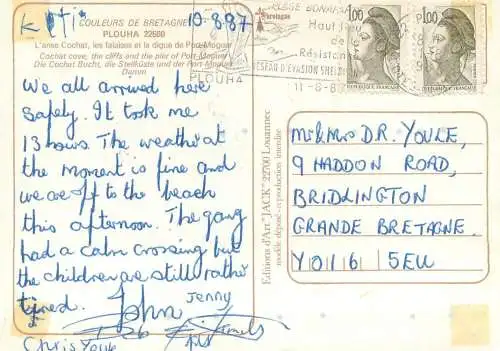 COULEURS DE BRETAGNE
10.8.87
PLOUHA 22580
L'anse Cochat, les falaises et la digue de Port-Moguer
Cochat cove; the cliffs and the pier of Port-Moguer
Die Cochat Bucht, die Steilküste und der Port-Moguer
Damm
We all arrived here
safely. It took me
13 hours. The weather at
the moment is fine and
we are off to the beach
this afternoon. The gang
had a calm crossing but
the children are still rather
tired. John Jenny
Chris
Editions d'Art "JACK" 22700 Louannec
modèle déposé - reproduction interdite
PLOUHA
Bretagne
Haut lieu
de la
Résistance
RESEAU D'EVASION
1,00
REPUBLIQUE FRANÇAISE
1,00
REPUBLIQUE FRANÇAISE
Mr & Mrs D.R. YOULE,
9 HADDON ROAD,
BRIDLINGTON
GRANDE BRETAGNE.
YO16 5EU